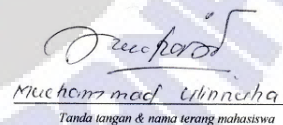 Muchammad Ulinnuha
Tanda tangan & nama terang mahasiswa